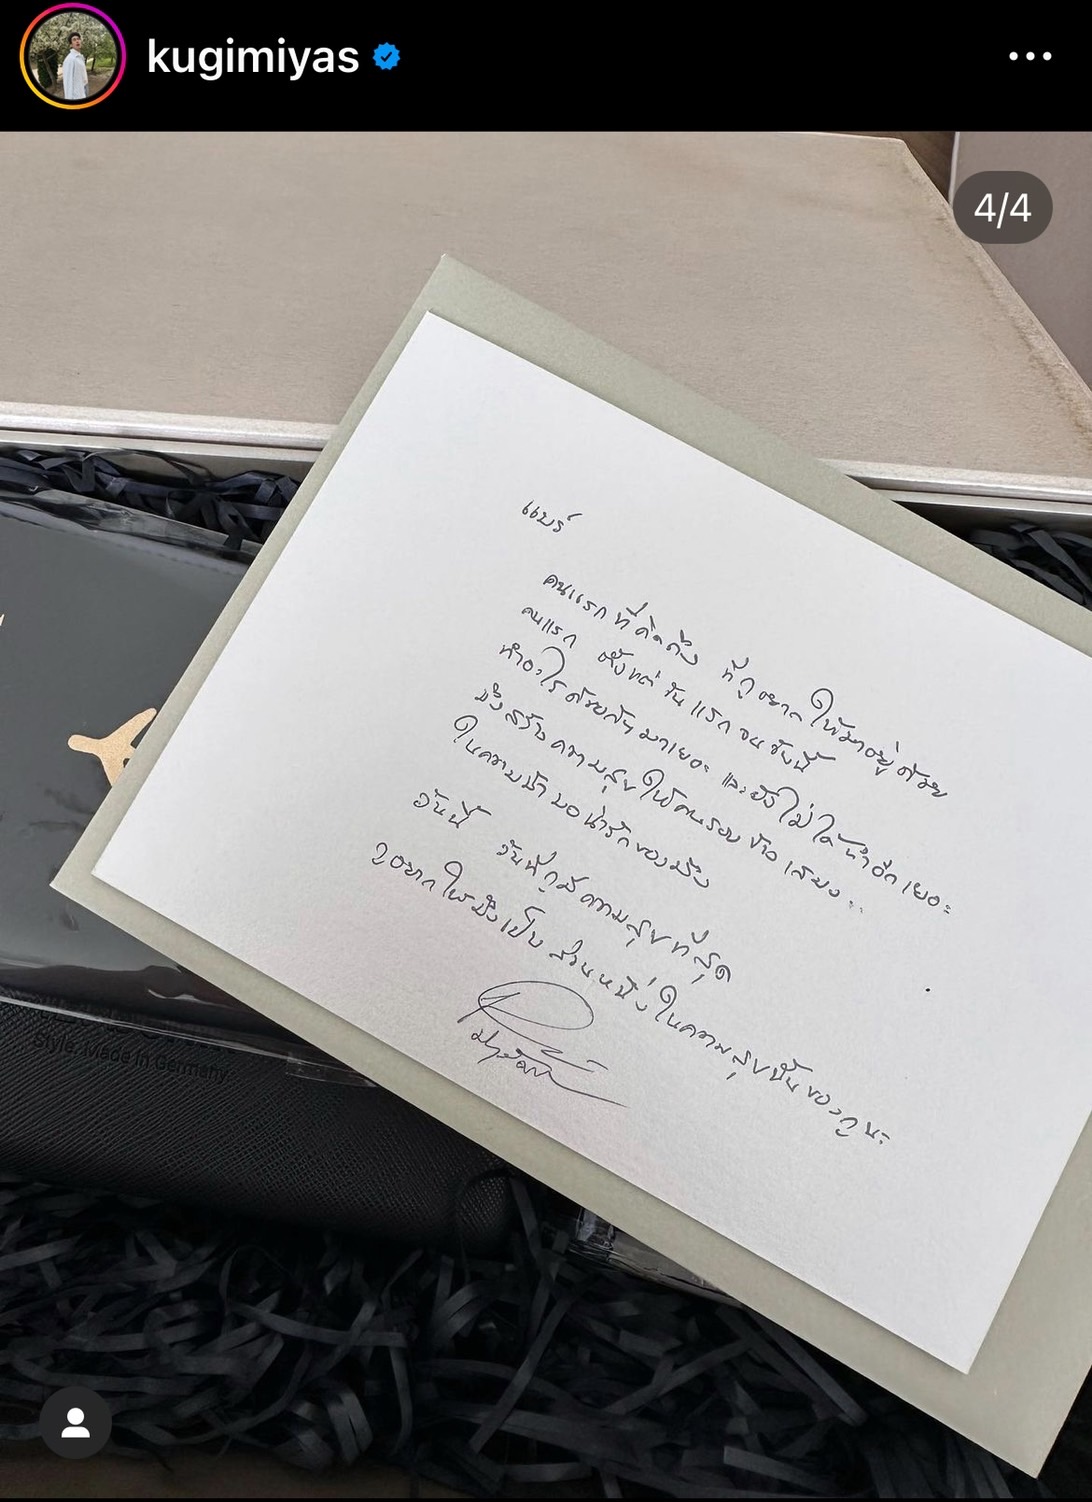 kugimiyas
4/4
แพร์
คนแรกที่คิดถึง ที่กูอยากให้มาอยู่ด้วย
คนแรก ตั้งแต่วันแรกจนวันนี้
ทำอะไรด้วยกันมาเยอะ และยังไม่ได้ทำอีกเยอะ
มึงสร้างความสุขให้คนรอบข้างเสมอ..
ในความน่ารักของมึง
วันนี้ วันที่กูมีความสุขที่สุด
กูอยากให้มึงเป็นส่วนหนึ่งในความสุขนั้นของกูนะ
Style. Made in Germany